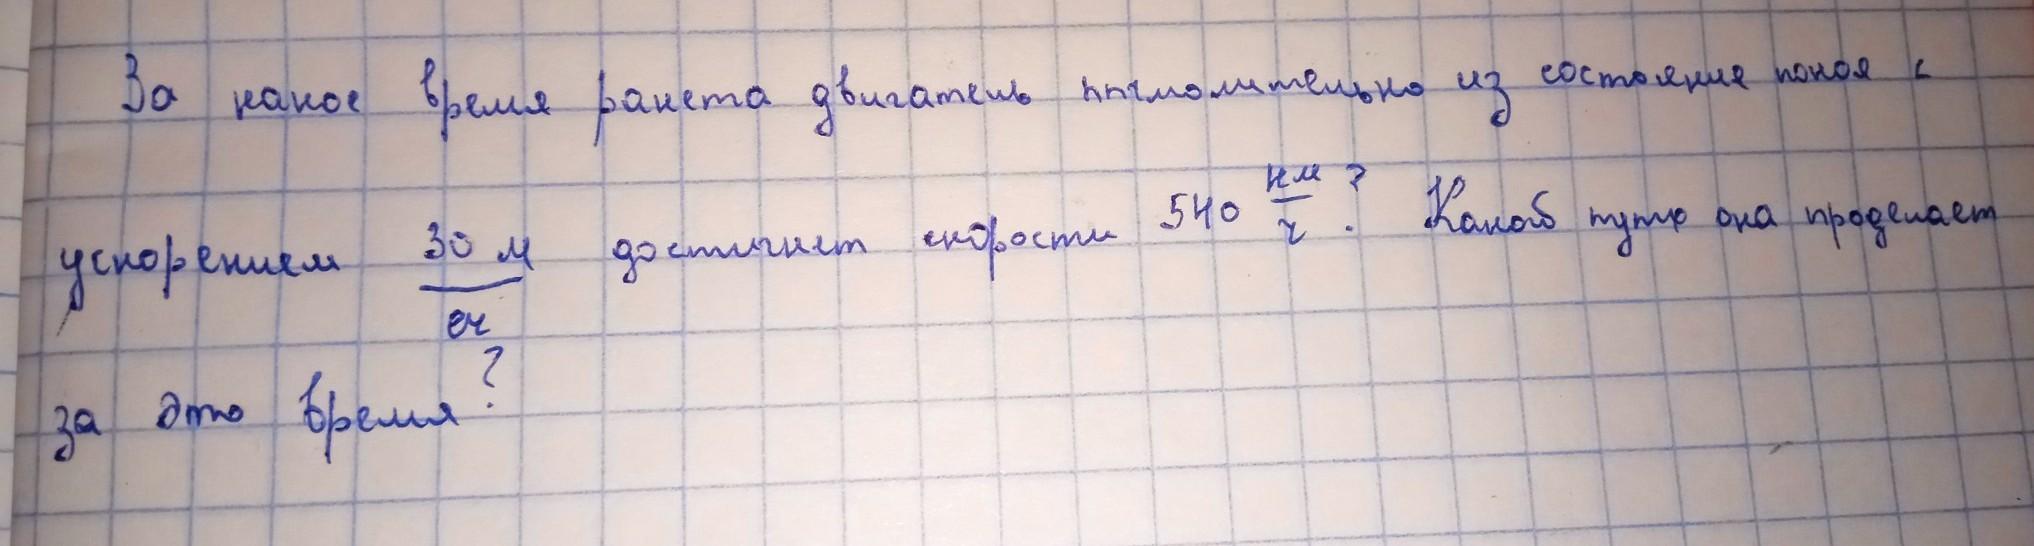 За какое время ракета двигатель прямолительно из состояние покоя с
ускорением 30 м/сч достигнет скорости 540 км/ч? Какой путь она проделает
за это время?